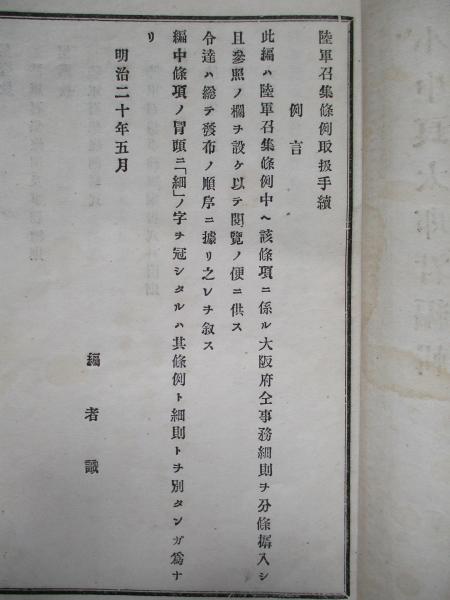 陸軍召集條例取扱手續
例言
此編ハ陸軍召集條例中ヘ該條項ニ係ル大阪府仝事務細則ヲ分條揷入シ
且參照ノ欄ヲ設ケ以テ閱覽ノ便ニ供ス
令達ハ總テ發布ノ順序ニ據リ之レヲ敍ス
編中條項ノ冒頭ニ「細」ノ字ヲ冠シタルハ其條例ト細則トヲ別タンガ爲ナ
リ
明治二十年五月
編者識